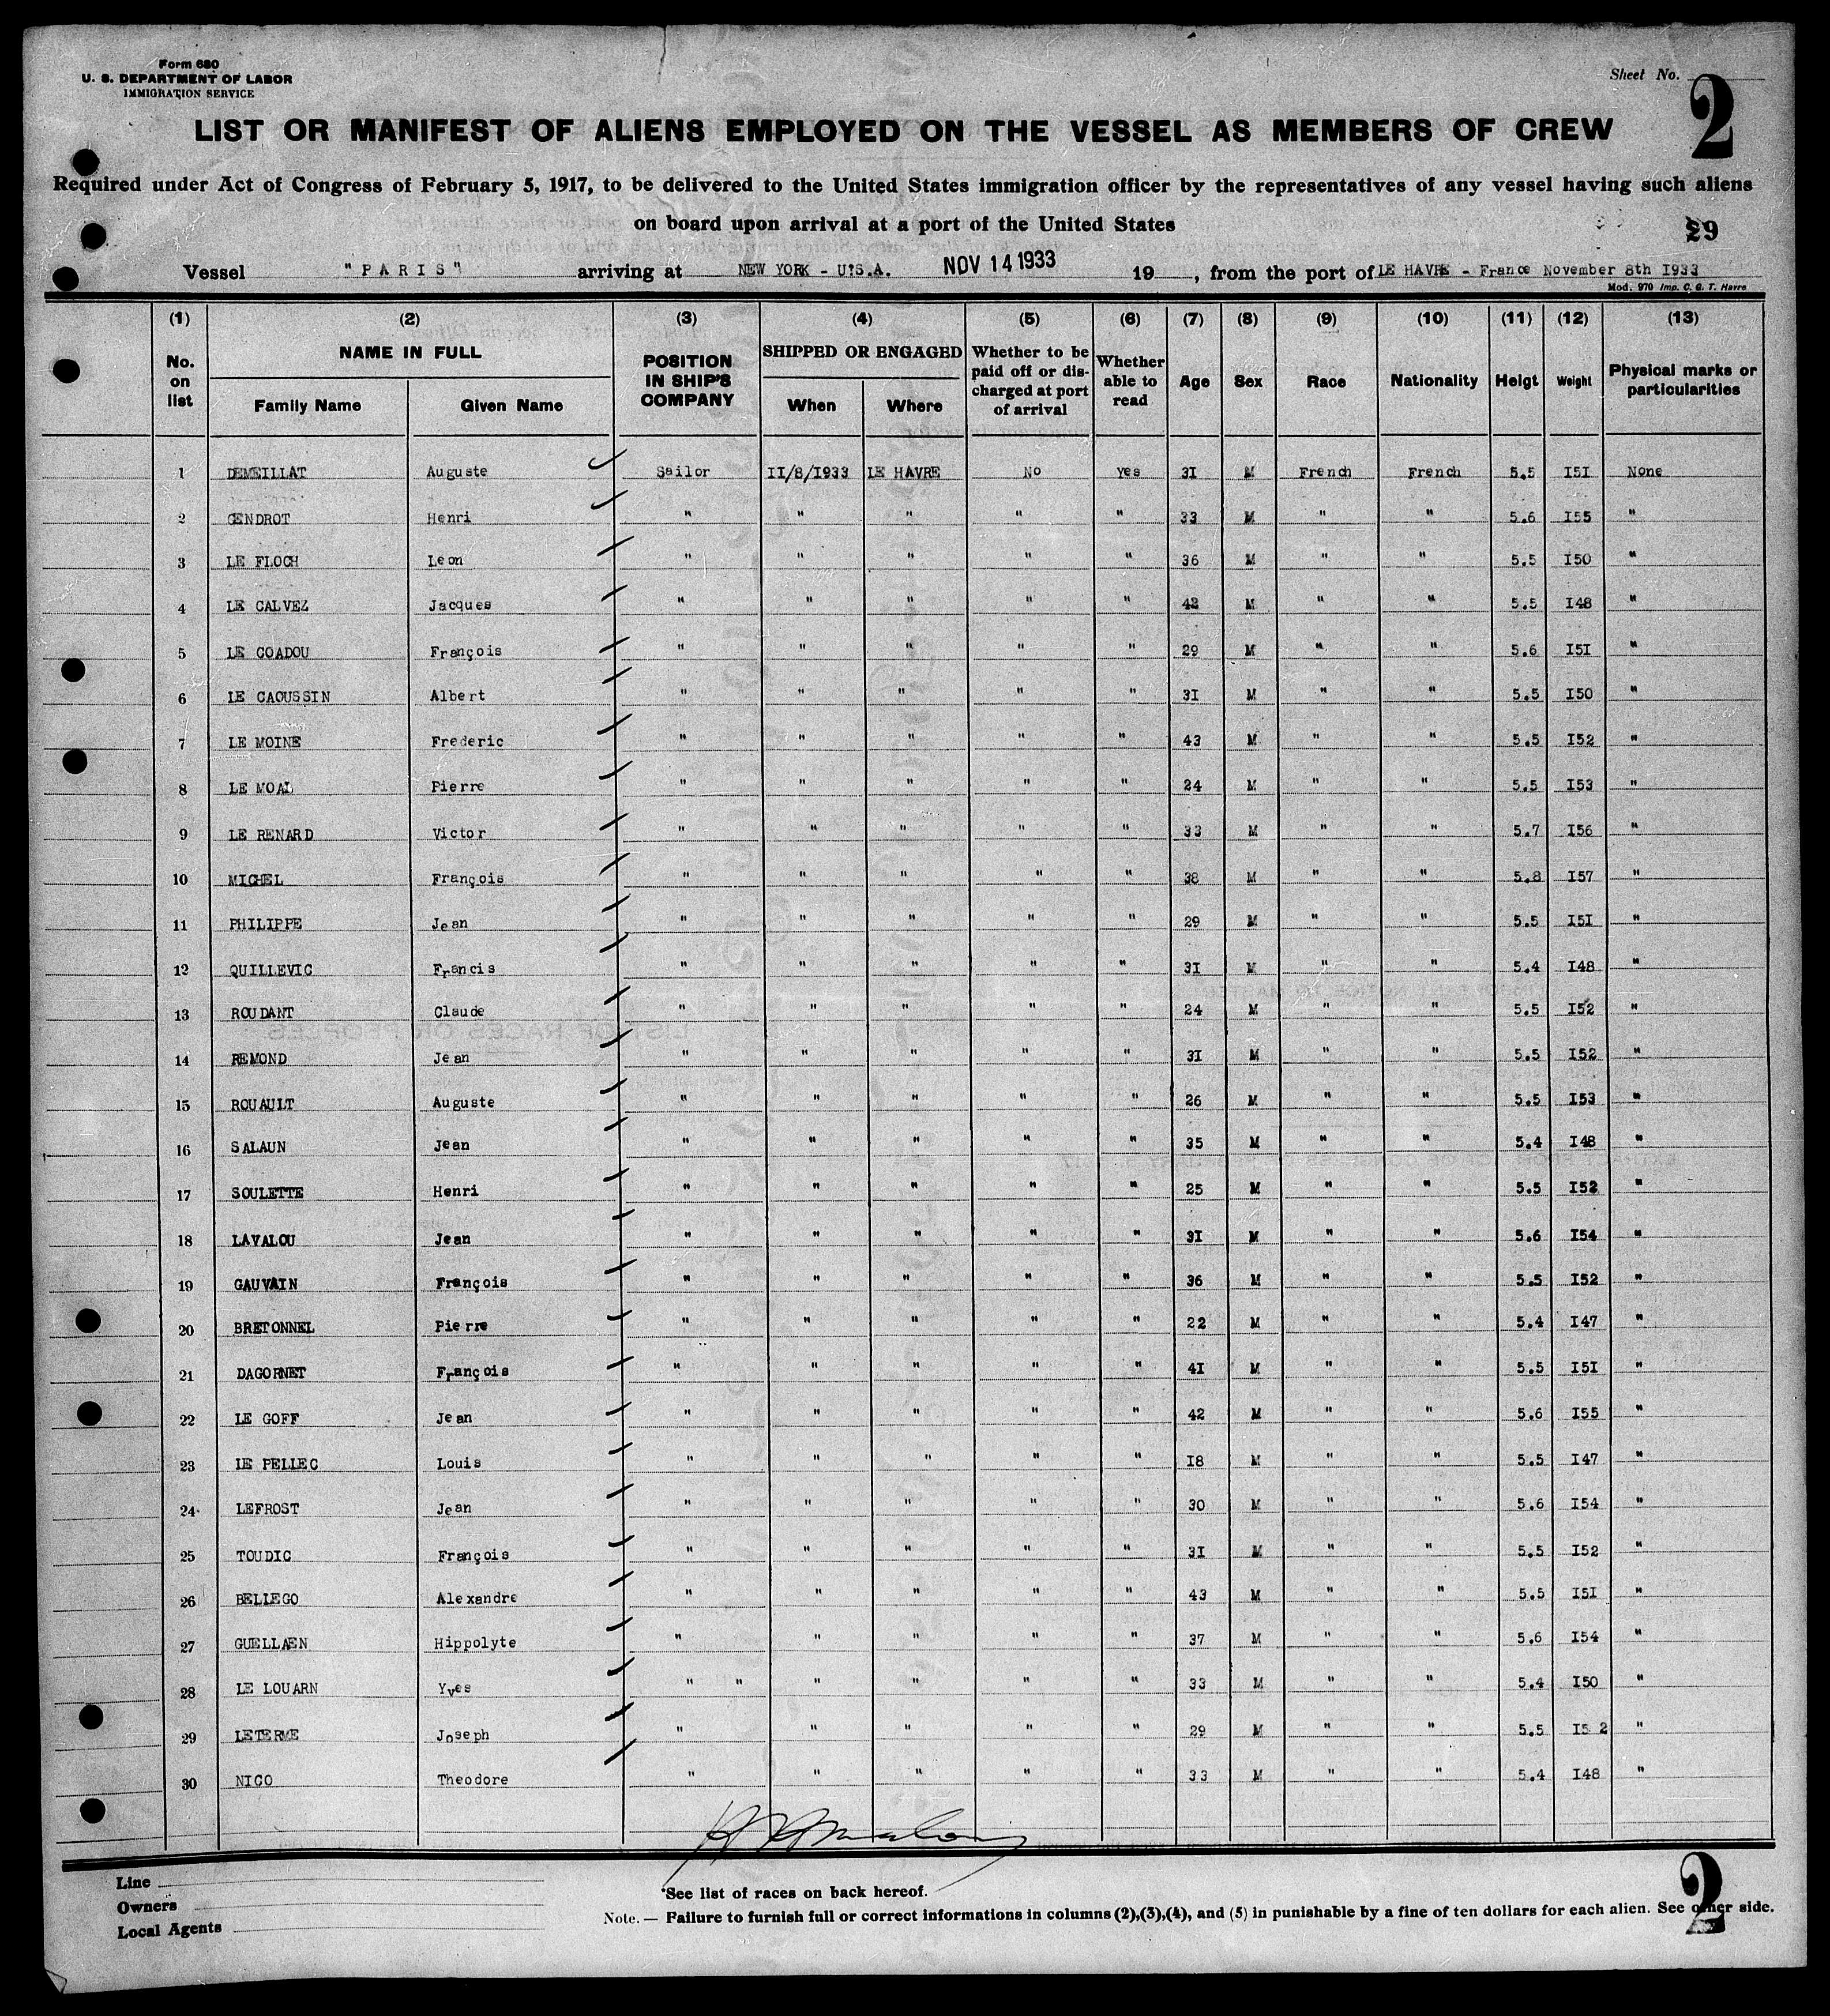 Form 680
U. S. DEPARTMENT OF LABOR
IMMIGRATION SERVICE
Sheet No. 2
LIST OR MANIFEST OF ALIENS EMPLOYED ON THE VESSEL AS MEMBERS OF CREW
Required under Act of Congress of February 5, 1917, to be delivered to the United States immigration officer by the representatives of any vessel having such aliens
on board upon arrival at a port of the United States
29
Vessel "PARIS" arriving at NEW YORK - U.S.A. NOV 14 1933 19 , from the port of LE HAVRE - France November 8th I933
Mod. 970 Imp. C. G. T. Havre
(1) (2) (3) (4) (5) (6) (7) (8) (9) (10) (11) (12) (13)
No. on list NAME IN FULL Family Name Given Name POSITION IN SHIP'S COMPANY SHIPPED OR ENGAGED When Where Whether to be paid off or discharged at port of arrival Whether able to read Age Sex Race Nationality Heigt Weight Physical marks or particularities
1 DEMEILLAT Auguste Sailor II/8/I933 LE HAVRE No yes 3I M French French 5.5 I5I None
2 GENDROT Henri " " " " " 33 M " " 5.6 I55 "
3 LE FLOCH Leon " " " " " 36 M " " 5.5 I50 "
4 LE CALVEZ Jacques " " " " " 42 M " " 5.5 I48 "
5 LE COADOU François " " " " " 29 M " " 5.6 I5I "
6 LE CAOUSSIN Albert " " " " " 3I M " " 5.5 I50 "
7 LE MOINE Frederic " " " " " 43 M " " 5.5 I52 "
8 LE MOAL Pierre " " " " " 24 M " " 5.5 I53 "
9 LE RENARD Victor " " " " " 33 M " " 5.7 I56 "
10 MICHEL François " " " " " 38 M " " 5.8 I57 "
11 PHILIPPE Jean " " " " " 29 M " " 5.5 I5I "
12 QUILLEVIC Francis " " " " " 3I M " " 5.4 I48 "
13 ROUDANT Claude " " " " " 24 M " " 5.5 I52 "
14 REMOND Jean " " " " " 3I M " " 5.5 I52 "
15 ROUAULT Auguste " " " " " 26 M " " 5.5 I53 "
16 SALAUN Jean " " " " " 35 M " " 5.4 I48 "
17 SOULETTE Henri " " " " " 25 M " " 5.5 I52 "
18 LAVALOU Jean " " " " " 3I M " " 5.6 I54 "
19 GAUVAIN François " " " " " 36 M " " 5.5 I52 "
20 BRETONNEL Pierre " " " " " 22 M " " 5.4 I47 "
21 DAGORNET François " " " " " 4I M " " 5.5 I5I "
22 LE GOFF Jean " " " " " 42 M " " 5.6 I55 "
23 LE PELLEC Louis " " " " " I8 M " " 5.5 I47 "
24 LEFROST Jean " " " " " 30 M " " 5.6 I54 "
25 TOUDIC François " " " " " 3I M " " 5.5 I52 "
26 BELLEGO Alexandre " " " " " 43 M " " 5.5 I5I "
27 GUELLAEN Hippolyte " " " " " 37 M " " 5.6 I54 "
28 LE LOUARN Yves " " " " " " 33 M " " 5.4 I50 "
29 LETERME Joseph " " " " " 29 M " " 5.5 I5 2 "
30 NICO Theodore " " " " " 33 M " " 5.4 I48 "
Line
Owners
Local Agents
*See list of races on back hereof.
Note. — Failure to furnish full or correct informations in columns (2),(3),(4), and (5) in punishable by a fine of ten dollars for each alien. See other side.
2